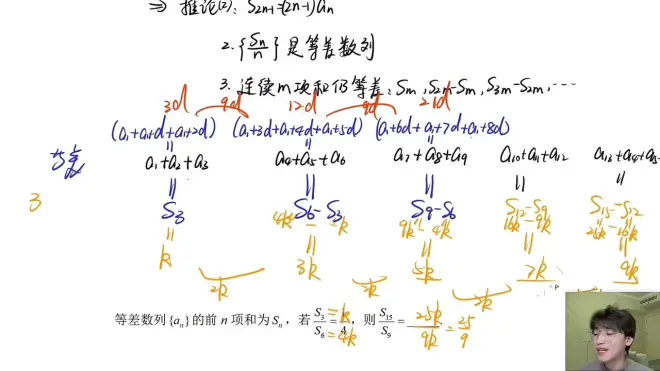 ⇒ 推论(2): S2n-1=(2n-1)an
2.{Sn/n}是等差数列
3.连续m项和仍等差: Sm,S2m-Sm,S3m-S2m,…
3d 9d 12d 9d 21d
(a1+a1+d+a1+2d) (a1+3d+a1+4d+a1+5d) (a1+6d+a1+7d+a1+8d)
a1+a2+a3 a4+a5+a6 a7+a8+a9 a10+a11+a12 a13+a14+a15
3 S3 S6-S3 S9-S6 S12-S9 S15-S12
4k-k 9k-4k 16k-9k 25k-16k
k 3k 5k 7k 9k
2k 2k 2k
等差数列{an}的前 n 项和为Sn，若 S3/S6=1/4，则 S15/S9= 25k/9k=25/9
=k
=4k